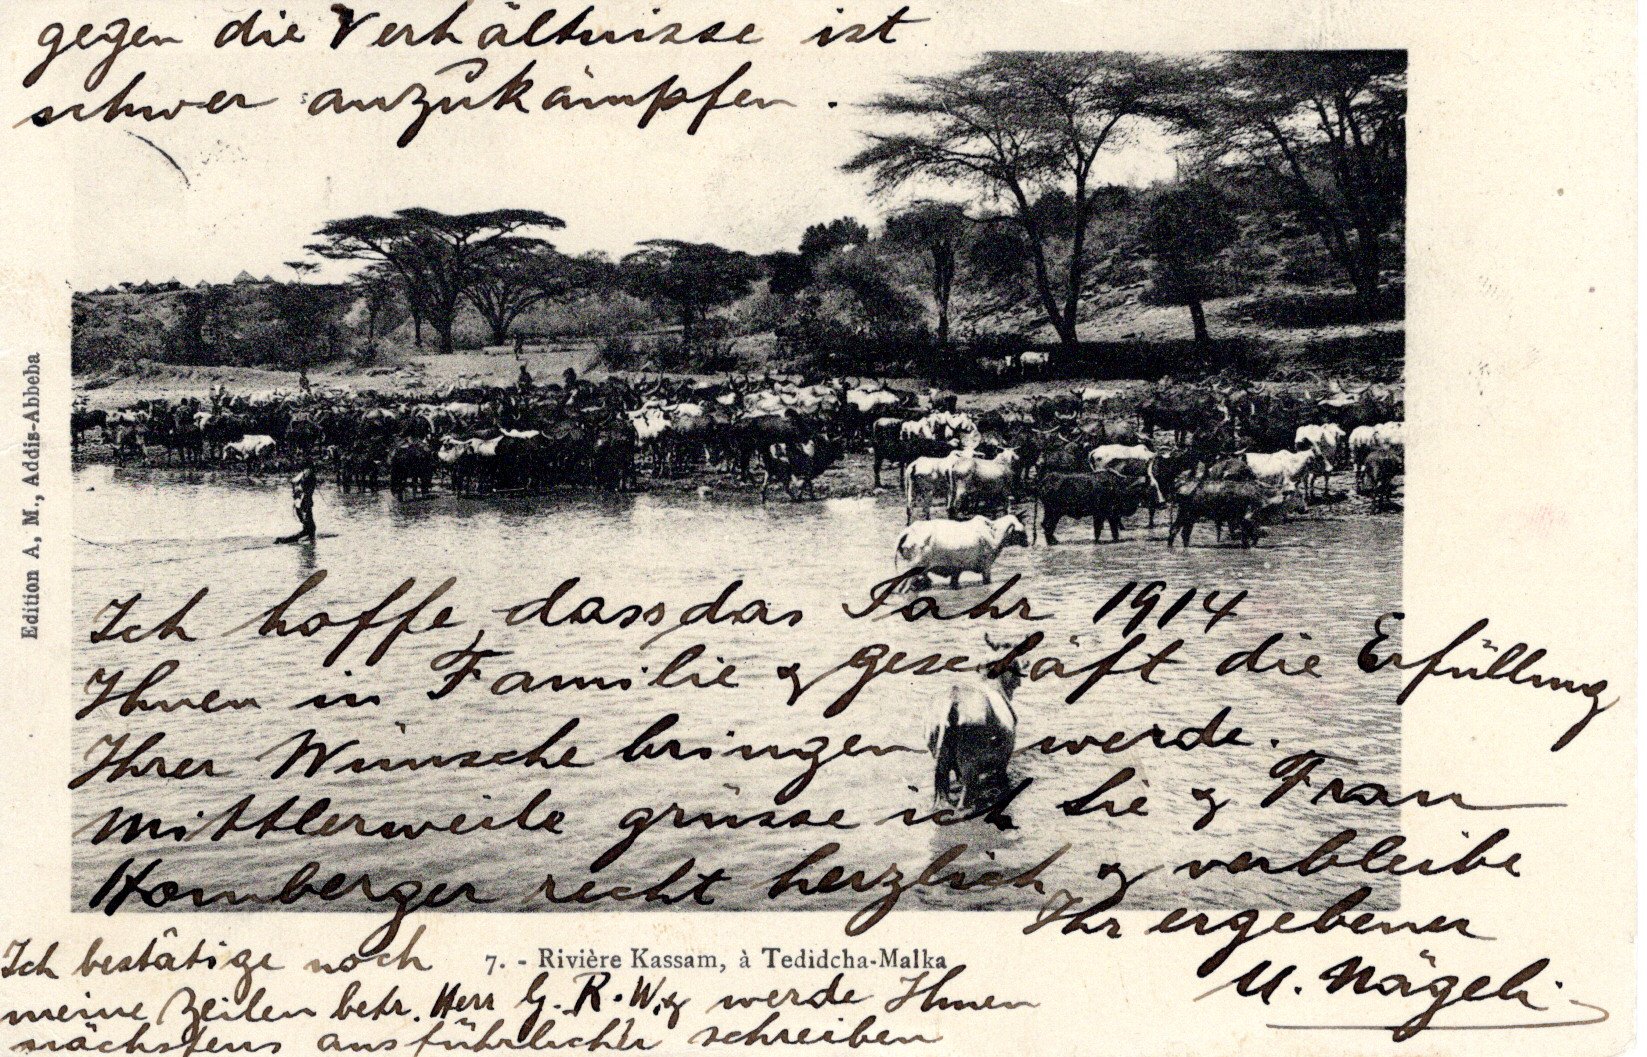 gegen die Verhältnisse ist
schwer anzukämpfen.
Edition A. M., Addis-Abbeba
Ich hoffe, dass das Jahr 1914
Ihnen in Familie & geschäft die Erfüllung
Ihrer Wünsche bringen werde.
Mittlerweile grüsse ich Sie & Frau
Homberger recht herzlich & verbleibe
Ihr ergebener
U. Nägeli
7. - Rivière Kassam, à Tedidcha-Malka
Ich bestätige noch
meine Zeilen betr. Herr G. R. W. & werde Ihnen
nächstens ausführlicher schreiben